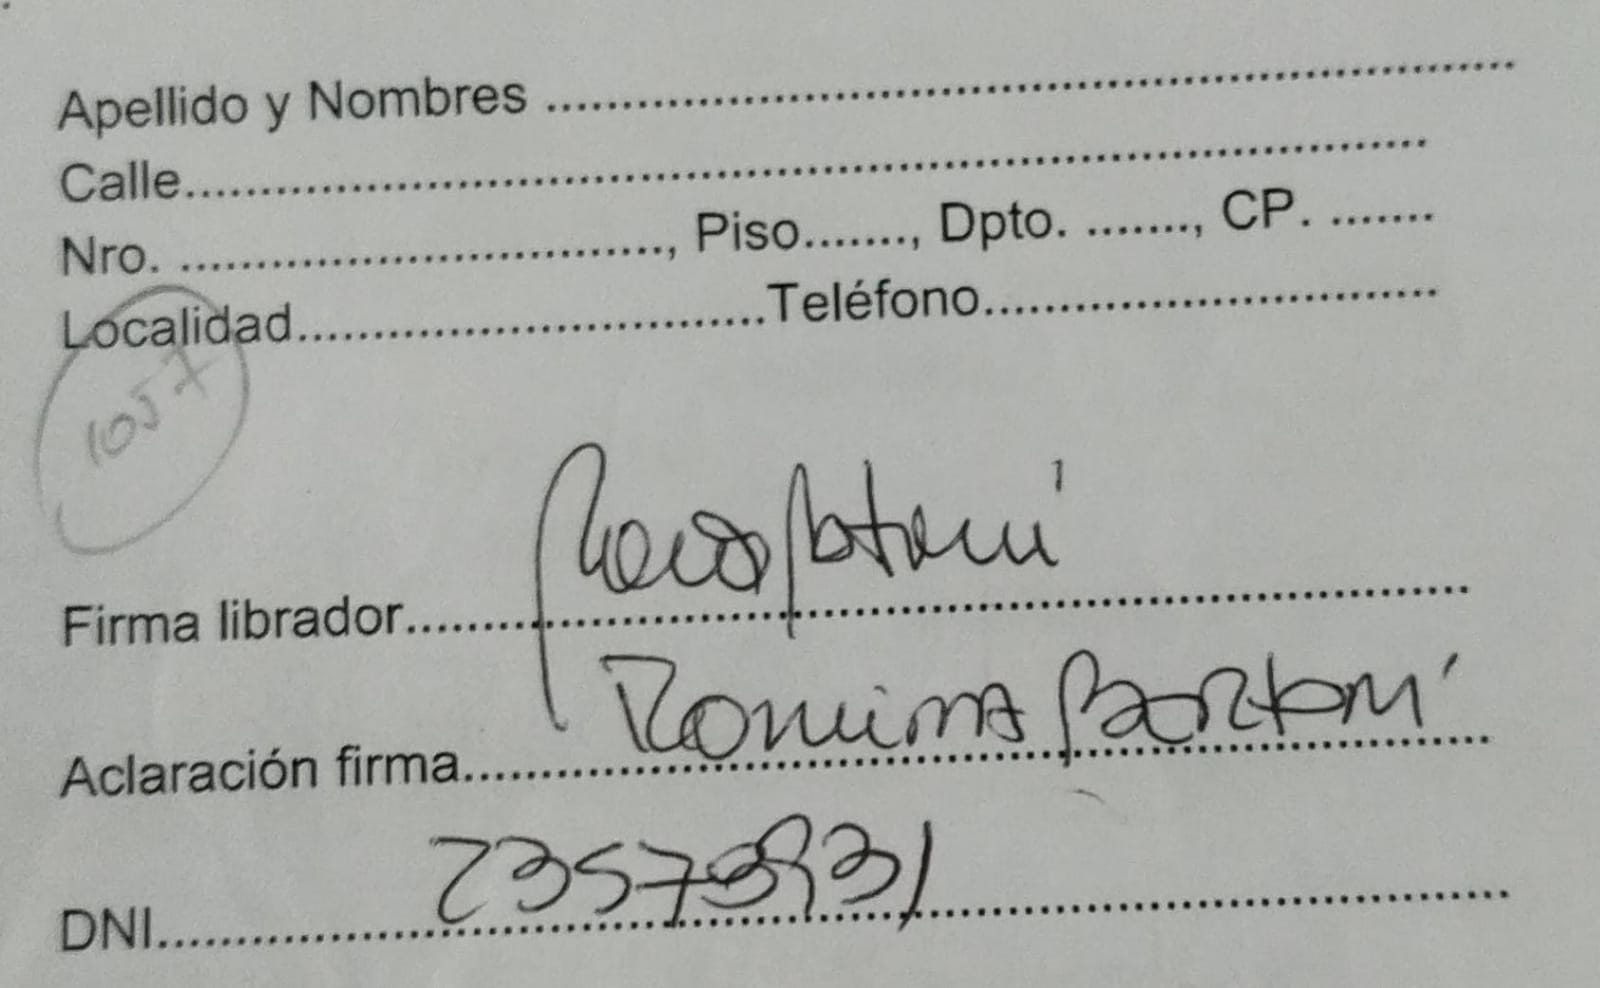 Apellido y Nombres ........................................................................
Calle........................................................................
Nro. ................................, Piso......., Dpto. ......., CP. .......
Localidad...............................Teléfono..............................
1057
Firma librador........................................................................
Aclaración firma........................................................................
Romina Bortoni
DNI........................................................................